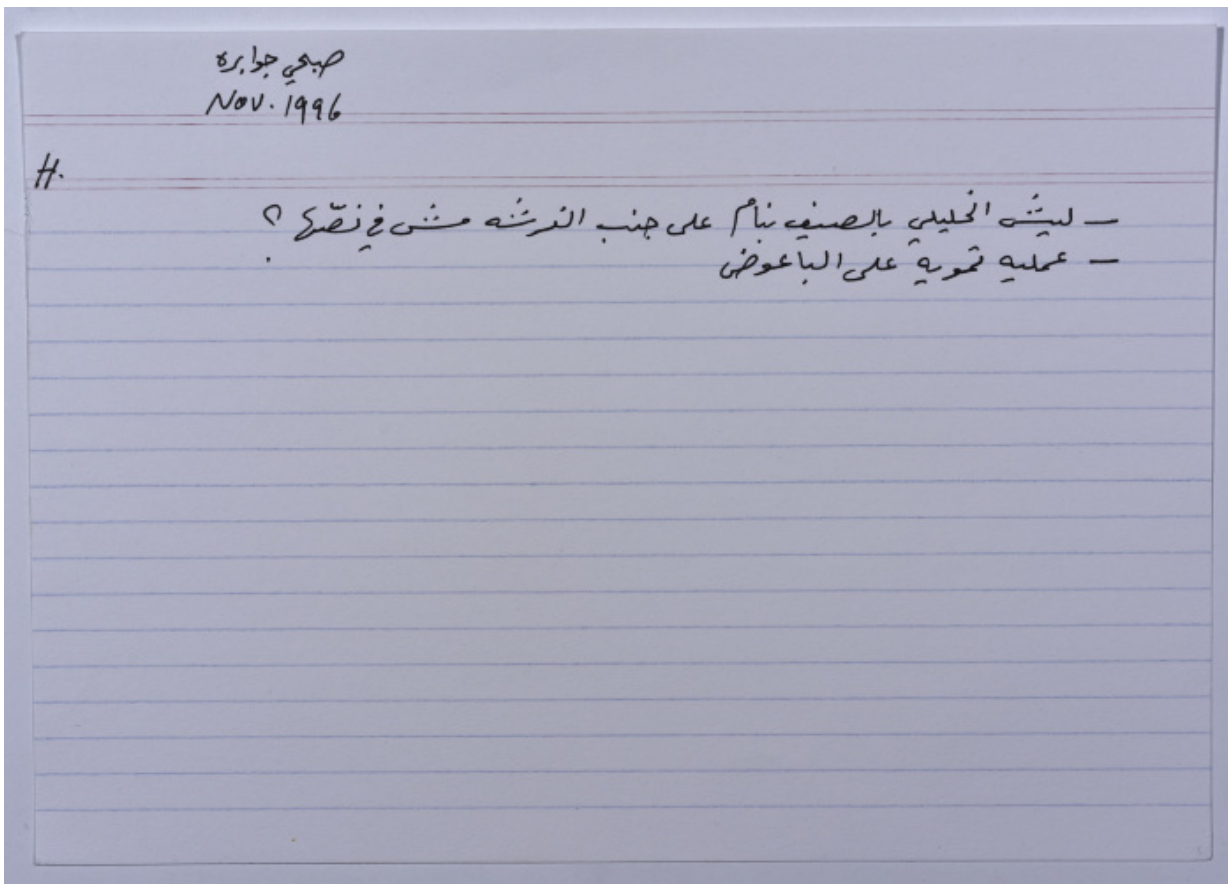 صبحي جوابره
Nov. 1996
H.
– ليش الخليلي بالصيف بنام على جنب الفرشه مش في نصّها ؟
– عمليه تمويه على الباعوض